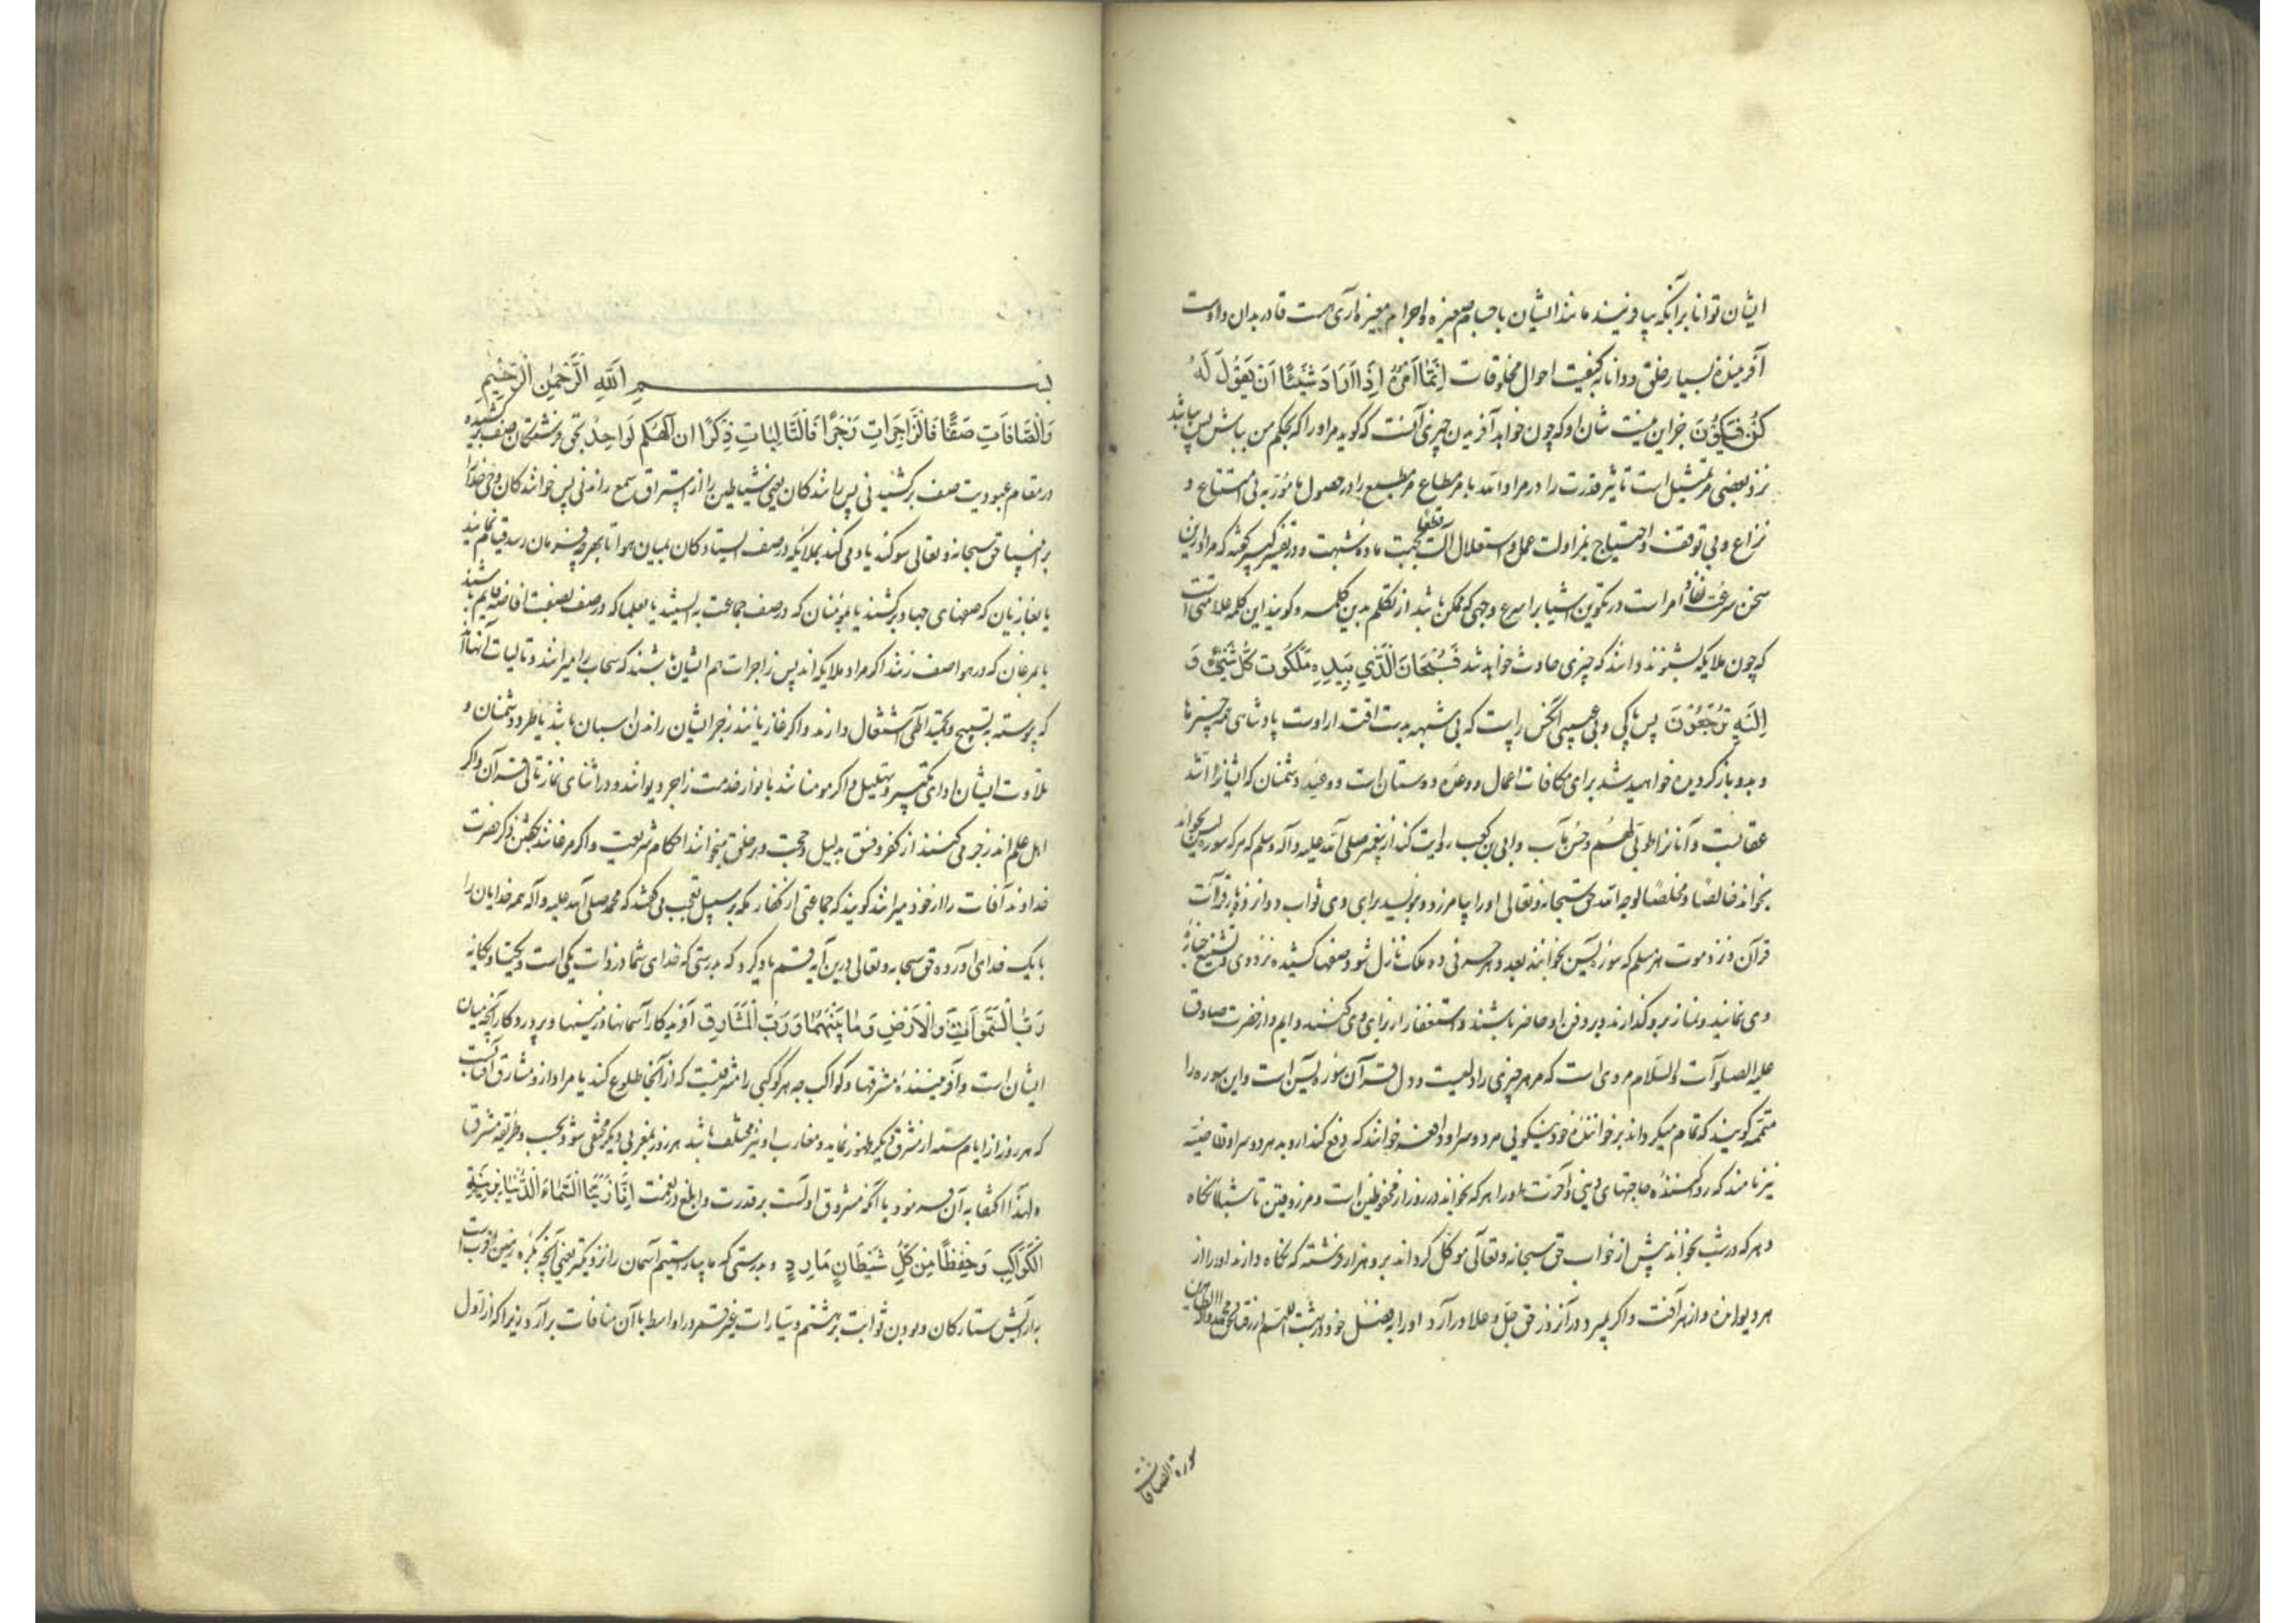 ایشان توانا بر آنکه بیافریند مانند ایشان با اجسام صغیره و اجرام آری هست قادر بدان و اوست
آفریننده بسیار خلق و دانا به کیفیت احوال مخلوقات اِنَّمَا اَمْرُهُ اِذَا اَرَادَ شَیْئًا اَنْ یَقُولَ لَهُ
کُنْ فَیَکُونَ جز این نیست شان او که چون خواهد آفریدن چیزی آنست که گوید مر او را که بحکم من باش پس بباشد
نزد بعضی تمثیل است تاثیر قدرت را در مراد الله بامر مطاع مر مطیع را در حصول مامور به بی امتناع و
نزاع و بی توقف و احتیاج بمزاولت عمل و استعلال آلت قطعا بجهت ماده شبهت و در تفسیر کبیر گفته که مراد ازین
سخن سرعت نفاذ امر است در تکوین اشیا بر اسرع وجهی که ممکن باشد از تکلم بدین کلمه و گویند این کلمه علامتی است
که چون ملایکه بشنوند دانند که چیزی حادث خواهد شد فَسُبْحَانَ الَّذِی بِیَدِهِ مَلَکُوتُ کُلِّ شَیْءٍ وَ
اِلَیْهِ تُرْجَعُونَ پس پاکی و بی عیبی آنکس راست که بی شبهه بدست اقتدار اوست پادشاهی همه چیزها
و بدو بازگردیده خواهید شد برای مکافات اعمال و وعده دوستان است و وعید دشمنان که اینانرا اشد
عقابست و آنانرا طوبی لهم و حسن مآب و ابی بن کعب روایت کند از پیغمبر صلی الله علیه و آله و سلم که هر که سوره یس بخواند
بخواند خالصا و مخلصا لوجه الله حق سبحانه و تعالی او را بیامرزد و بنویسد برای وی ثواب دوازده بار قرآت
قرآن و نزد موت هر مسلم که سوره یس بخوانند بعدد هر حرفی ده ملک نازل شود صفها کشیده نزد وی و تشییع جنازه
وی نمایند و نماز برو گذارند و بر دفن او حاضر باشند و استغفار از برای وی کنند و ایم و از حضرت صادق
علیه الصلوات و السلام مروی است که مر هر چیزی را دلیست و دل قرآن سوره یس است و این سوره را
متممه گویند که تمام میگرداند بر خواننده خود نیکویی هر دو سرا و دافعه خوانند که دفع کند ازو بد هر دو سرا و قاضیه
نیز نامند که روا کننده حاجتهای دینی و آخرت او را هر که بخواند در روز از محفوظین است و مرزوقین تا شبانگاه
و هر که در شب بخواند پیش از خواب حق سبحانه و تعالی موکل گرداند برو هزار فرشته که نگاه دارند او را از
هر دیو رانده و از هر آفت و اگر بمیرد در آن روز حق جل و علا در آرد او را بفضل خود در بهشت اللهم ارزقنا بحق محمد و آله الطاهرین
سورة الصافات
بسم اللهِ الرَّحْمٰنِ الرَّحِیمِ
وَالصَّافَّاتِ صَفًّا فَالزَّاجِرَاتِ زَجْرًا فَالتَّالِیَاتِ ذِکْرًا ان اِلٰهَکُمْ لَوَاحِدٌ بحق فرشتگان صف برکشیده
در مقام عبودیت صف برکشیدنی پس رانندگان یعنی شیاطین را از استراق سمع راندنی پس خوانندگان وحی خدا
بر انبیا حق سبحانه و تعالی سوگند یاد می کند بملایکه در صف ایستادگان بمیان هوا تا بهر چه فرمان رسد قیام نمایند
یا بغازیان که صفهای جهاد برکشند یا بمؤمنان که در صف جماعت بایستند یا بعلما که در صف بصفت افاضه قایم باشند
یا بمرغان که در هوا صف زنند اگر مراد ملایکه اند پس زاجرات هم ایشان باشند که سحاب را میرانند و تالیات آنها
که پیوسته بتسبیح و تمجید الهی اشتغال دارند و اگر غازیانند زجر ایشان راندن اسبان باشد یا طرد دشمنان و
تلاوت ایشان ادای تکبیر و تهلیل و اگر مومنانند بانوار خدمت زاجر دیوانند و در اثنای نماز تالی قرآن و اگر
اهل علم اند زجر می کنند از کفر و فسق بدلیل و حجت و بر خلق میخوانند احکام شریعت و اگر مرغانند بگفتن ذکر حضرت
خداوند آفات را از خود میرانند گویند که جماعتی از کفار مکه بر سبیل تعجب می گفتند که محمد صلی الله علیه و آله همه خدایان را
با یک خدای آورده حق سبحانه و تعالی درین آیه قسم یاد کرد که بدرستی که خدای شما در ذات یکی است و یکتا و یگانه
رَبُّ السَّمٰوَاتِ وَالْاَرْضِ وَمَا بَیْنَهُمَا وَرَبُّ الْمَشَارِقِ آفریدگار آسمانها و زمینها و پروردگار آنچه میان
ایشان است و آفریننده مشرقها و کواکب چه هر کوکبی را مشرقیست که از آنجا طلوع کند یا مراد ازو مشارق آفتابست
که هر روز از ایام سنه از مشرق دیگر ظهور نماید و مغارب او نیز مختلف باشد هر روز بمغربی دیگر مختفی شود بحسب و طریقه مشرق
و لهذا اکتفا به آن فرمود با آنکه شروق اولست بر قدرت و ابلغ در نعمت اِنَّا زَیَّنَّا السَّمَاءَ الدُّنْیَا بِزِینَةٍ
الْکَوَاکِبِ وَحِفْظًا مِنْ کُلِّ شَیْطَانٍ مَارِدٍ و بدرستی که ما بیاراستیم آسمان را نزدیکتر یعنی آنچه بکره زمین اقرب است
به آرایش ستارگان و بودن ثوابت بر هشتم و سیارات غیر قمر در اواسط با آن منافات برآرد زیرا که از اول